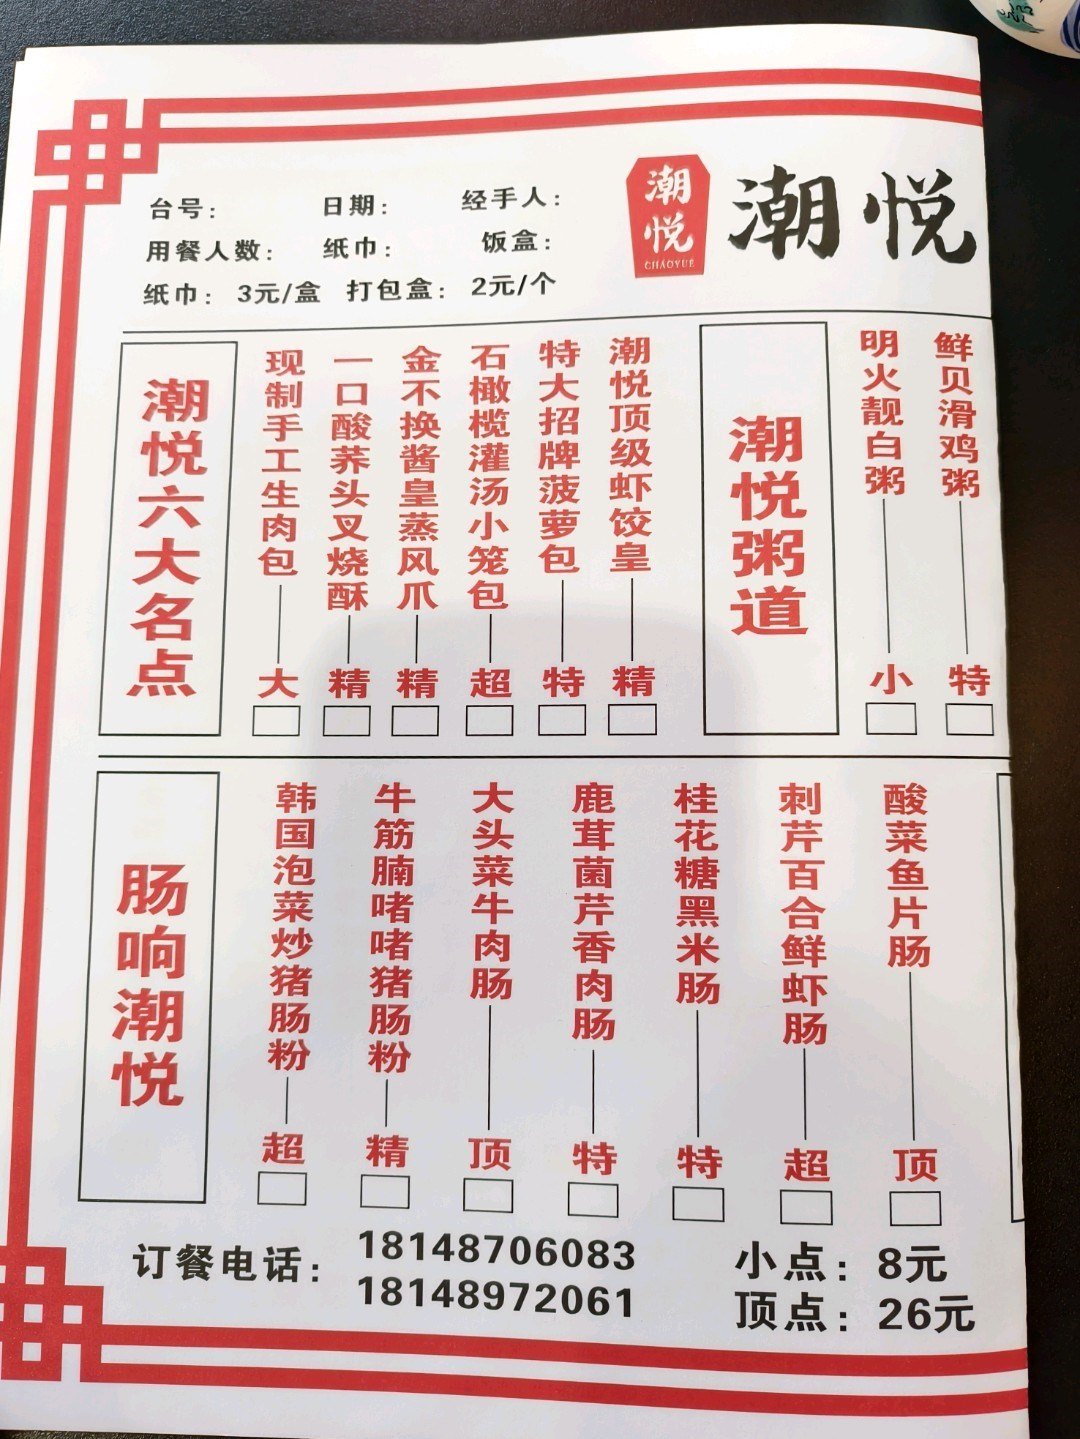 台号：
日期：
经手人：
用餐人数：
纸巾：
饭盒：
纸巾： 3元/盒 打包盒： 2元/个
潮悦
CHAOYUE
潮悦
潮悦六大名点
现制手工生肉包 大
一口酸荞头叉烧酥 精
金不换酱皇蒸风爪 精
石橄榄灌汤小笼包 超
特大招牌菠萝包 特
潮悦顶级虾饺皇 精
潮悦粥道
明火靓白粥 小
鲜贝滑鸡粥 特
肠响潮悦
韩国泡菜炒猪肠粉 超
牛筋腩啫啫猪肠粉 精
大头菜牛肉肠 顶
鹿茸菌芹香肉肠 特
桂花糖黑米肠 特
刺芹百合鲜虾肠 超
酸菜鱼片肠 顶
订餐电话：
18148706083
18148972061
小点： 8元
顶点： 26元